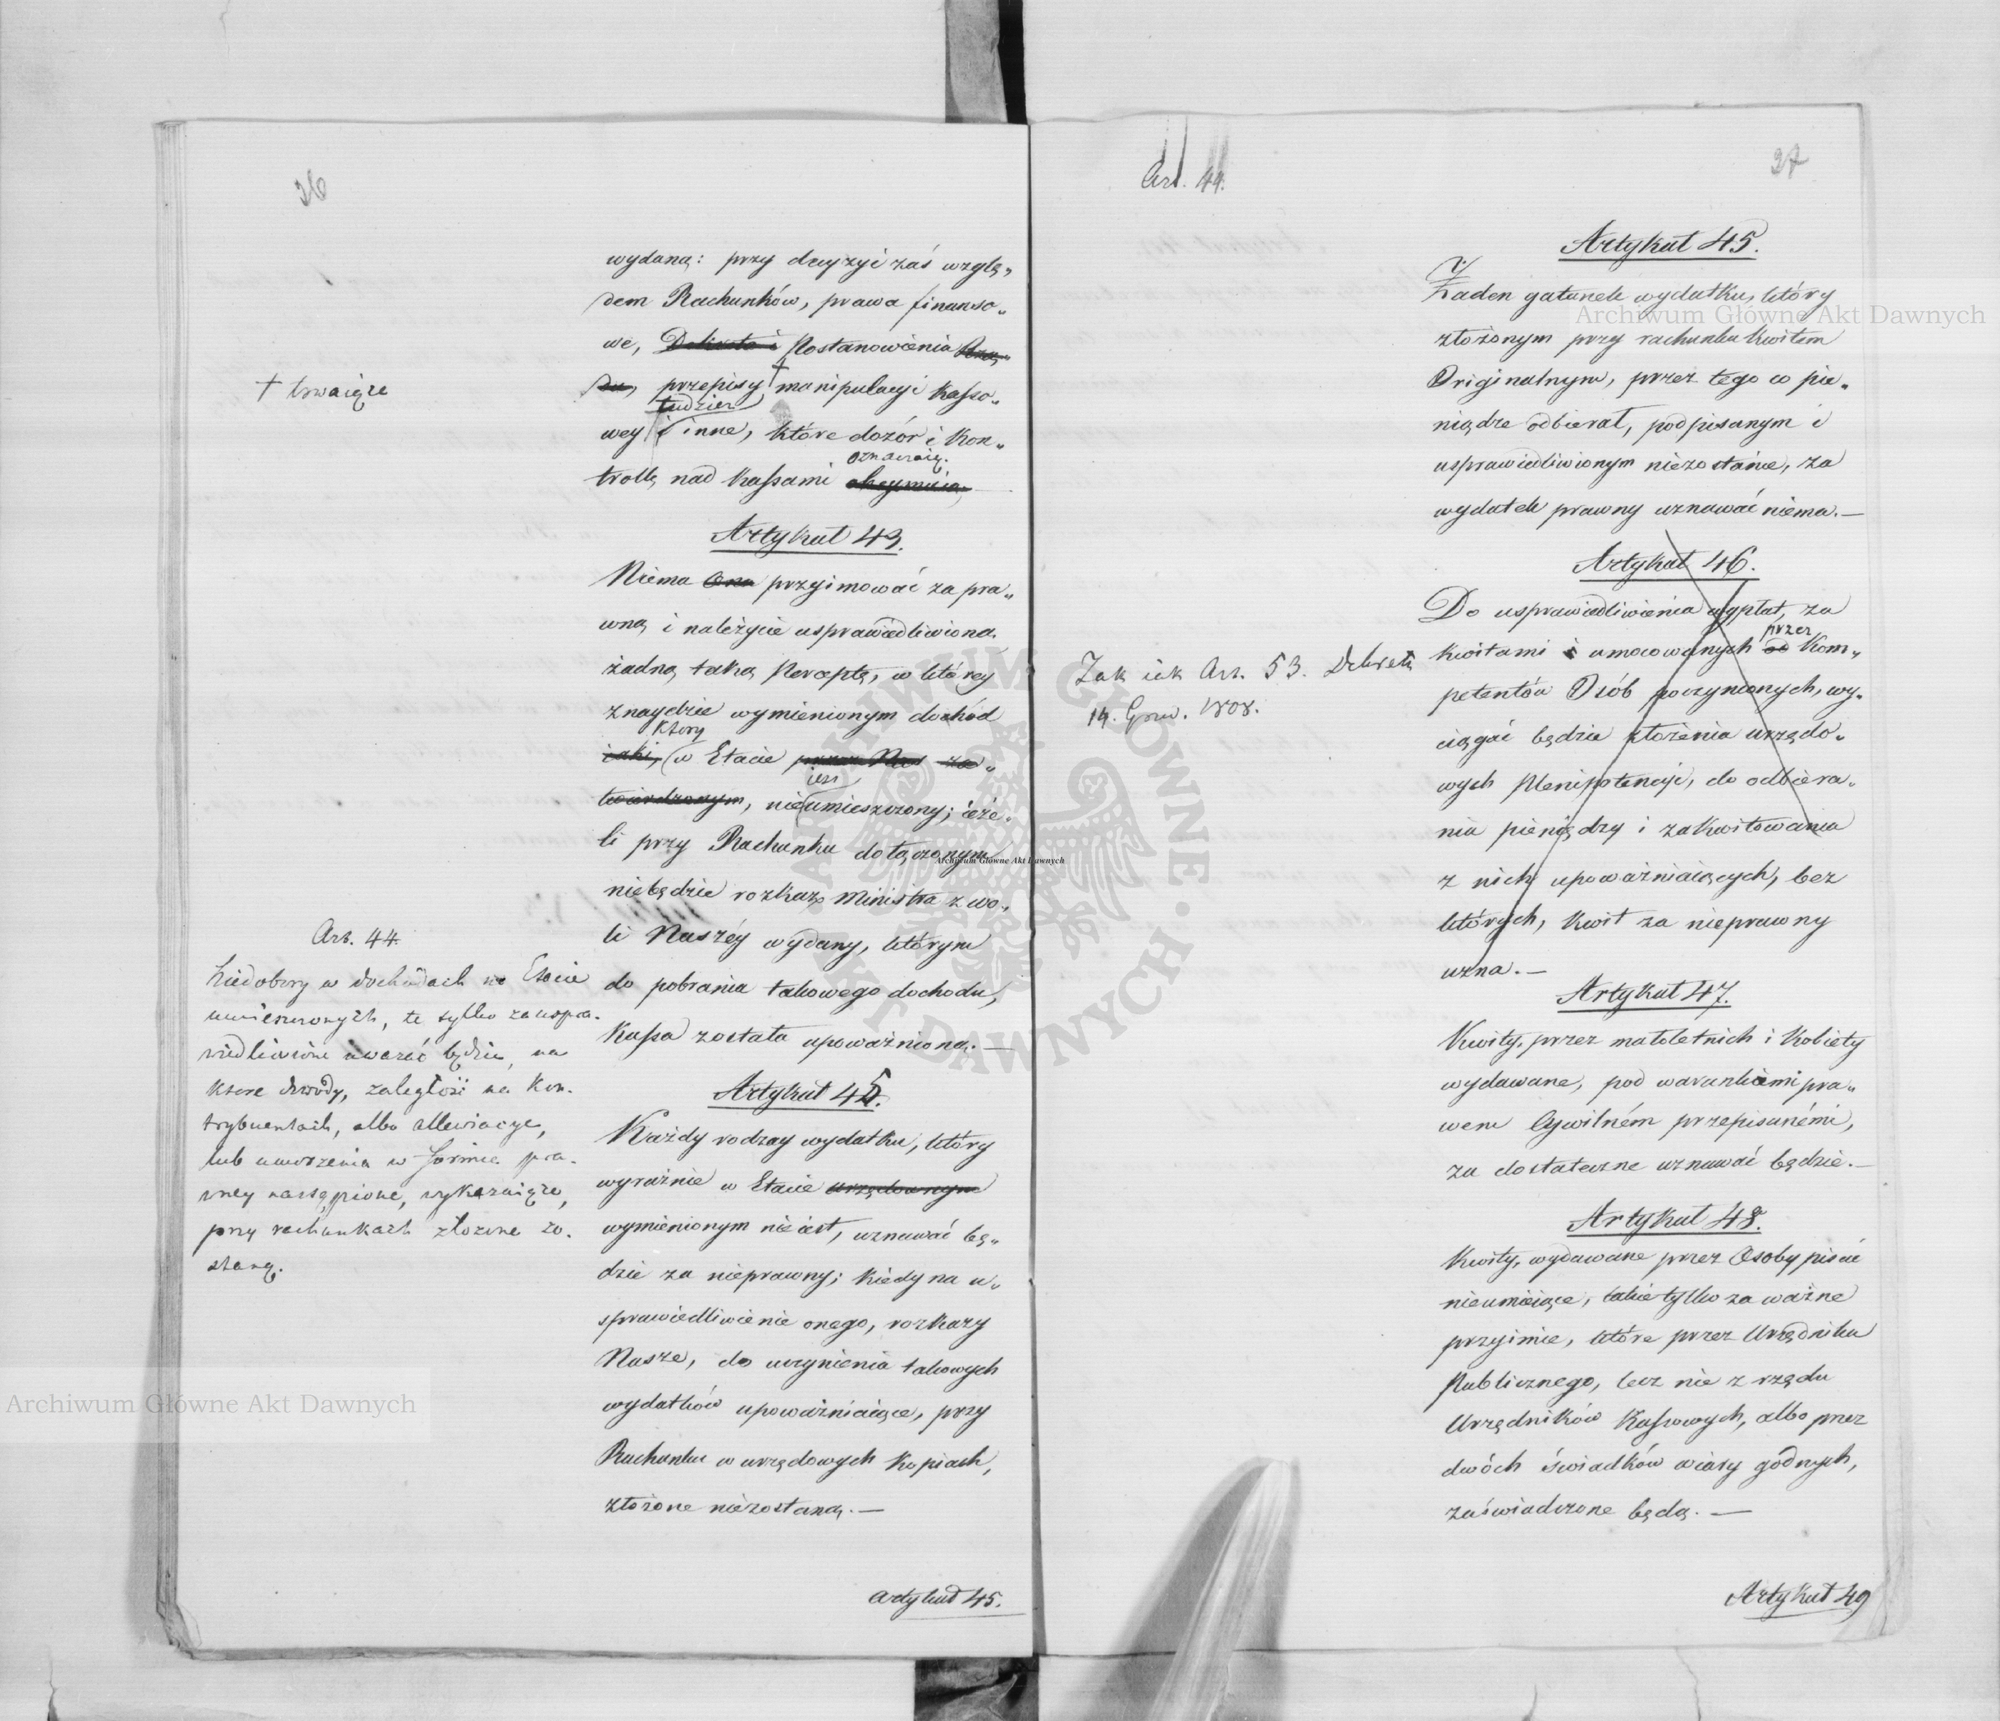 26
† trwaiące
wydaną: przy decyzyi zaś wzglę„
dem Rachunków, prawa finanso„
we, Dekreta i Postanowienia Rzą„
du, przepisy † manipulacyi Kasso„
tudzież
wey i inne, które dozór i Kon„
oznaczaią.
trollę nad Kassami obeymuią,
Artykuł 43.
Niema Ona przyimować za pra„
wną i należycie usprawiedliwioną,
żadną taką Perceptę, w którey
znaydzie wymienionym dochód
który
iaki, w Etacie przez Nas za„
iest
twierdzonym, nieumieszczony; ieże„
li przy Rachunku dołączonym
niebędzie rozkaz Ministra z wo„
li Naszéy wydany, którym
do pobrania takowego dochodu,
Kassa została upoważnioną. —
Art. 44.
Niedobory w dochodach w Etacie
umieszczonych, te tylko za uspra-
wiedliwione uważać będzie, na
które dowody, zaległość na Kon-
trybuentach, albo allewiacye,
lub umorzenia w formie pra-
wney nastąpione, wykazuiące,
przy rachunkach złożone zo-
staną.
Artykuł 45.
Każdy rodzay wydatku, który
wyraźnie w Etacie urzędownym
wymienionym nieiest, uznawać bę„
dzie za nieprawny; kiedy na u„
sprawiedliwienie onego, rozkazy
Nasze, do uczynienia takowych
wydatków upoważniaiące, przy
Rachunku w urzędowych Kopiach,
złożone niezostaną. —
Artykuł 45.
Art. 44.
27
Artykuł 45.
Żaden gatunek wydatku, który
złożonym przy rachunku Kwitem
Originalnym, przez tego co pie„
niądze odbierał, podpisanym i
usprawiedliwionym niezostanie, za
wydatek prawny uznawać niema. —
Artykuł 46.
Do usprawiedliwienia wypłat, za
przez
Kwitami i umocowanych od Kom„
petentów Osób poczynionych, wy„
ciągać będzie złożenia urzędo„
wych Plenipotencyi, do odbiera„
nia pieniędzy i zakwitowania
z nich upoważniaiących, bez
których, Kwit za nieprawny
uzna. —
Jak iak Art. 53. Dekretu
14. Grud. 1808.
Artykuł 47.
Kwity, przez małoletnich i Kobiety
wydawane, pod warunkiemi pra„
wem Cywilném przepisanémi,
za dostateczne uznawać będzie. —
Artykuł 48.
Kwity, wydawane przez Osoby pisać
nieumieiące, takie tylko za ważne
przyimie, które przez Urzędnika
Publicznego, lecz nie z rzędu
Urzędników Kassowych, albo przez
dwóch świadków wiary godnych,
zaświadczone będą. —
Artykuł 49
Archiwum Główne Akt Dawnych
Archiwum Główne Akt Dawnych
Archiwum Główne Akt Dawnych
ARCHIWUM GŁÓWNE AKT DAWNYCH